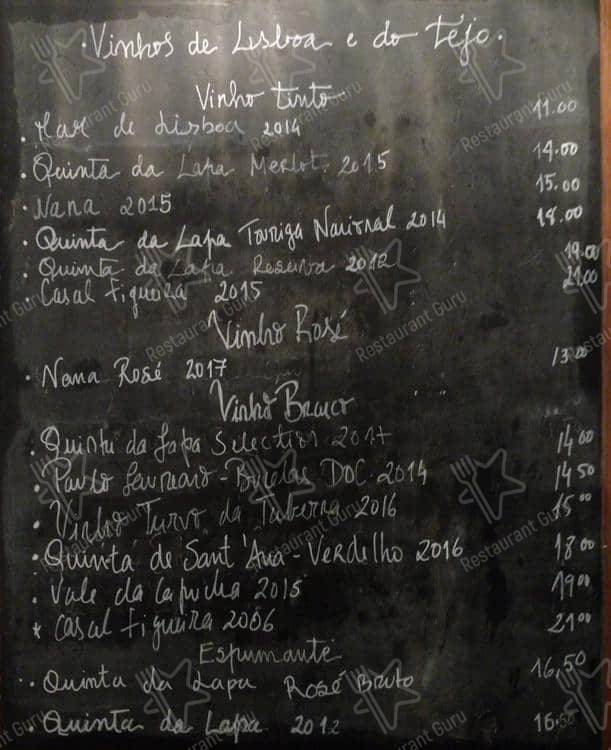 · Vinhos de Lisboa e do Tejo.
Vinho tinto
· Mar de Lisboa 2014 11.00
· Quinta da Lapa Merlot 2015 14.00
· Nana 2015 15.00
· Quinta da Lapa Touriga Nacional 2014 18.00
· Quinta da Lapa Reserva 2012 19.00
· Casal Figueira 2015 21.00
Vinho Rosé
· Nana Rosé 2017 13.00
Vinho Branco
· Quinta da Lapa Selection 2017 14 00
· Paulo - Bucelas DOC 2014 14 50
· Vinho Turvo da Taberna 2016 15 00
· Quinta de Sant'Ana - Verdelho 2016 18 00
· Vale da Capucha 2015 19 00
* Casal Figueira 2006 21 00
Espumante
·· Quinta da Lapa Rosé Bruto 16,50
· Quinta da Lapa 2012 16.50
Restaurant Guru